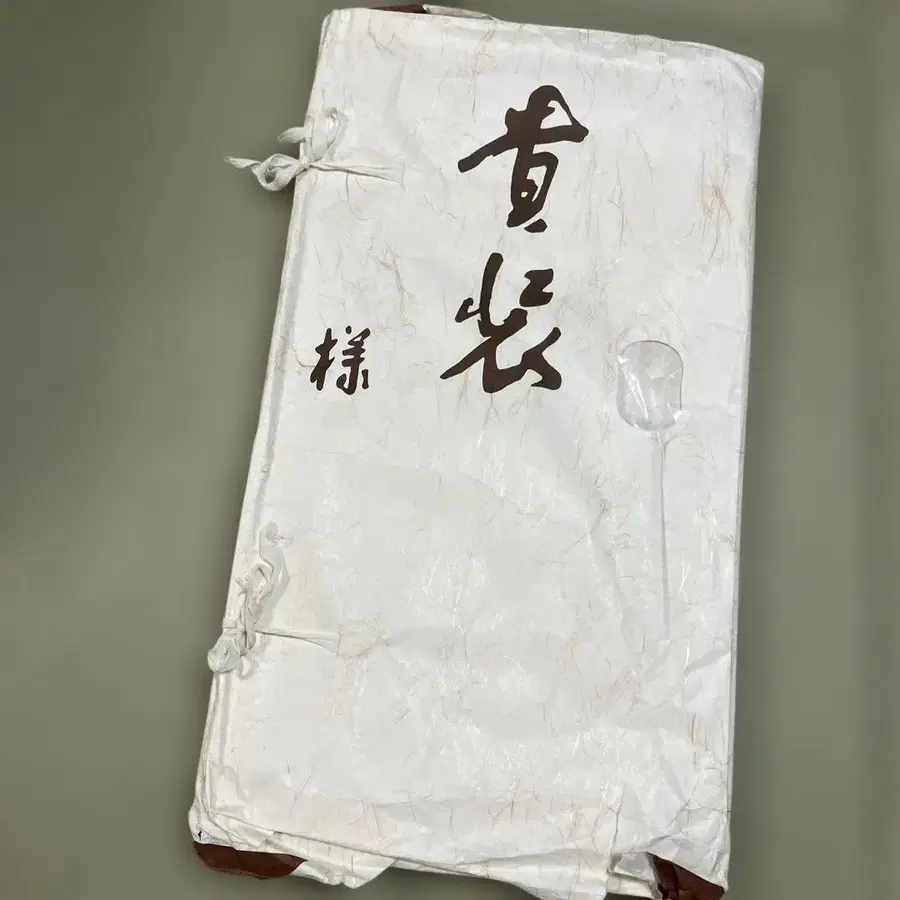 貴装
様